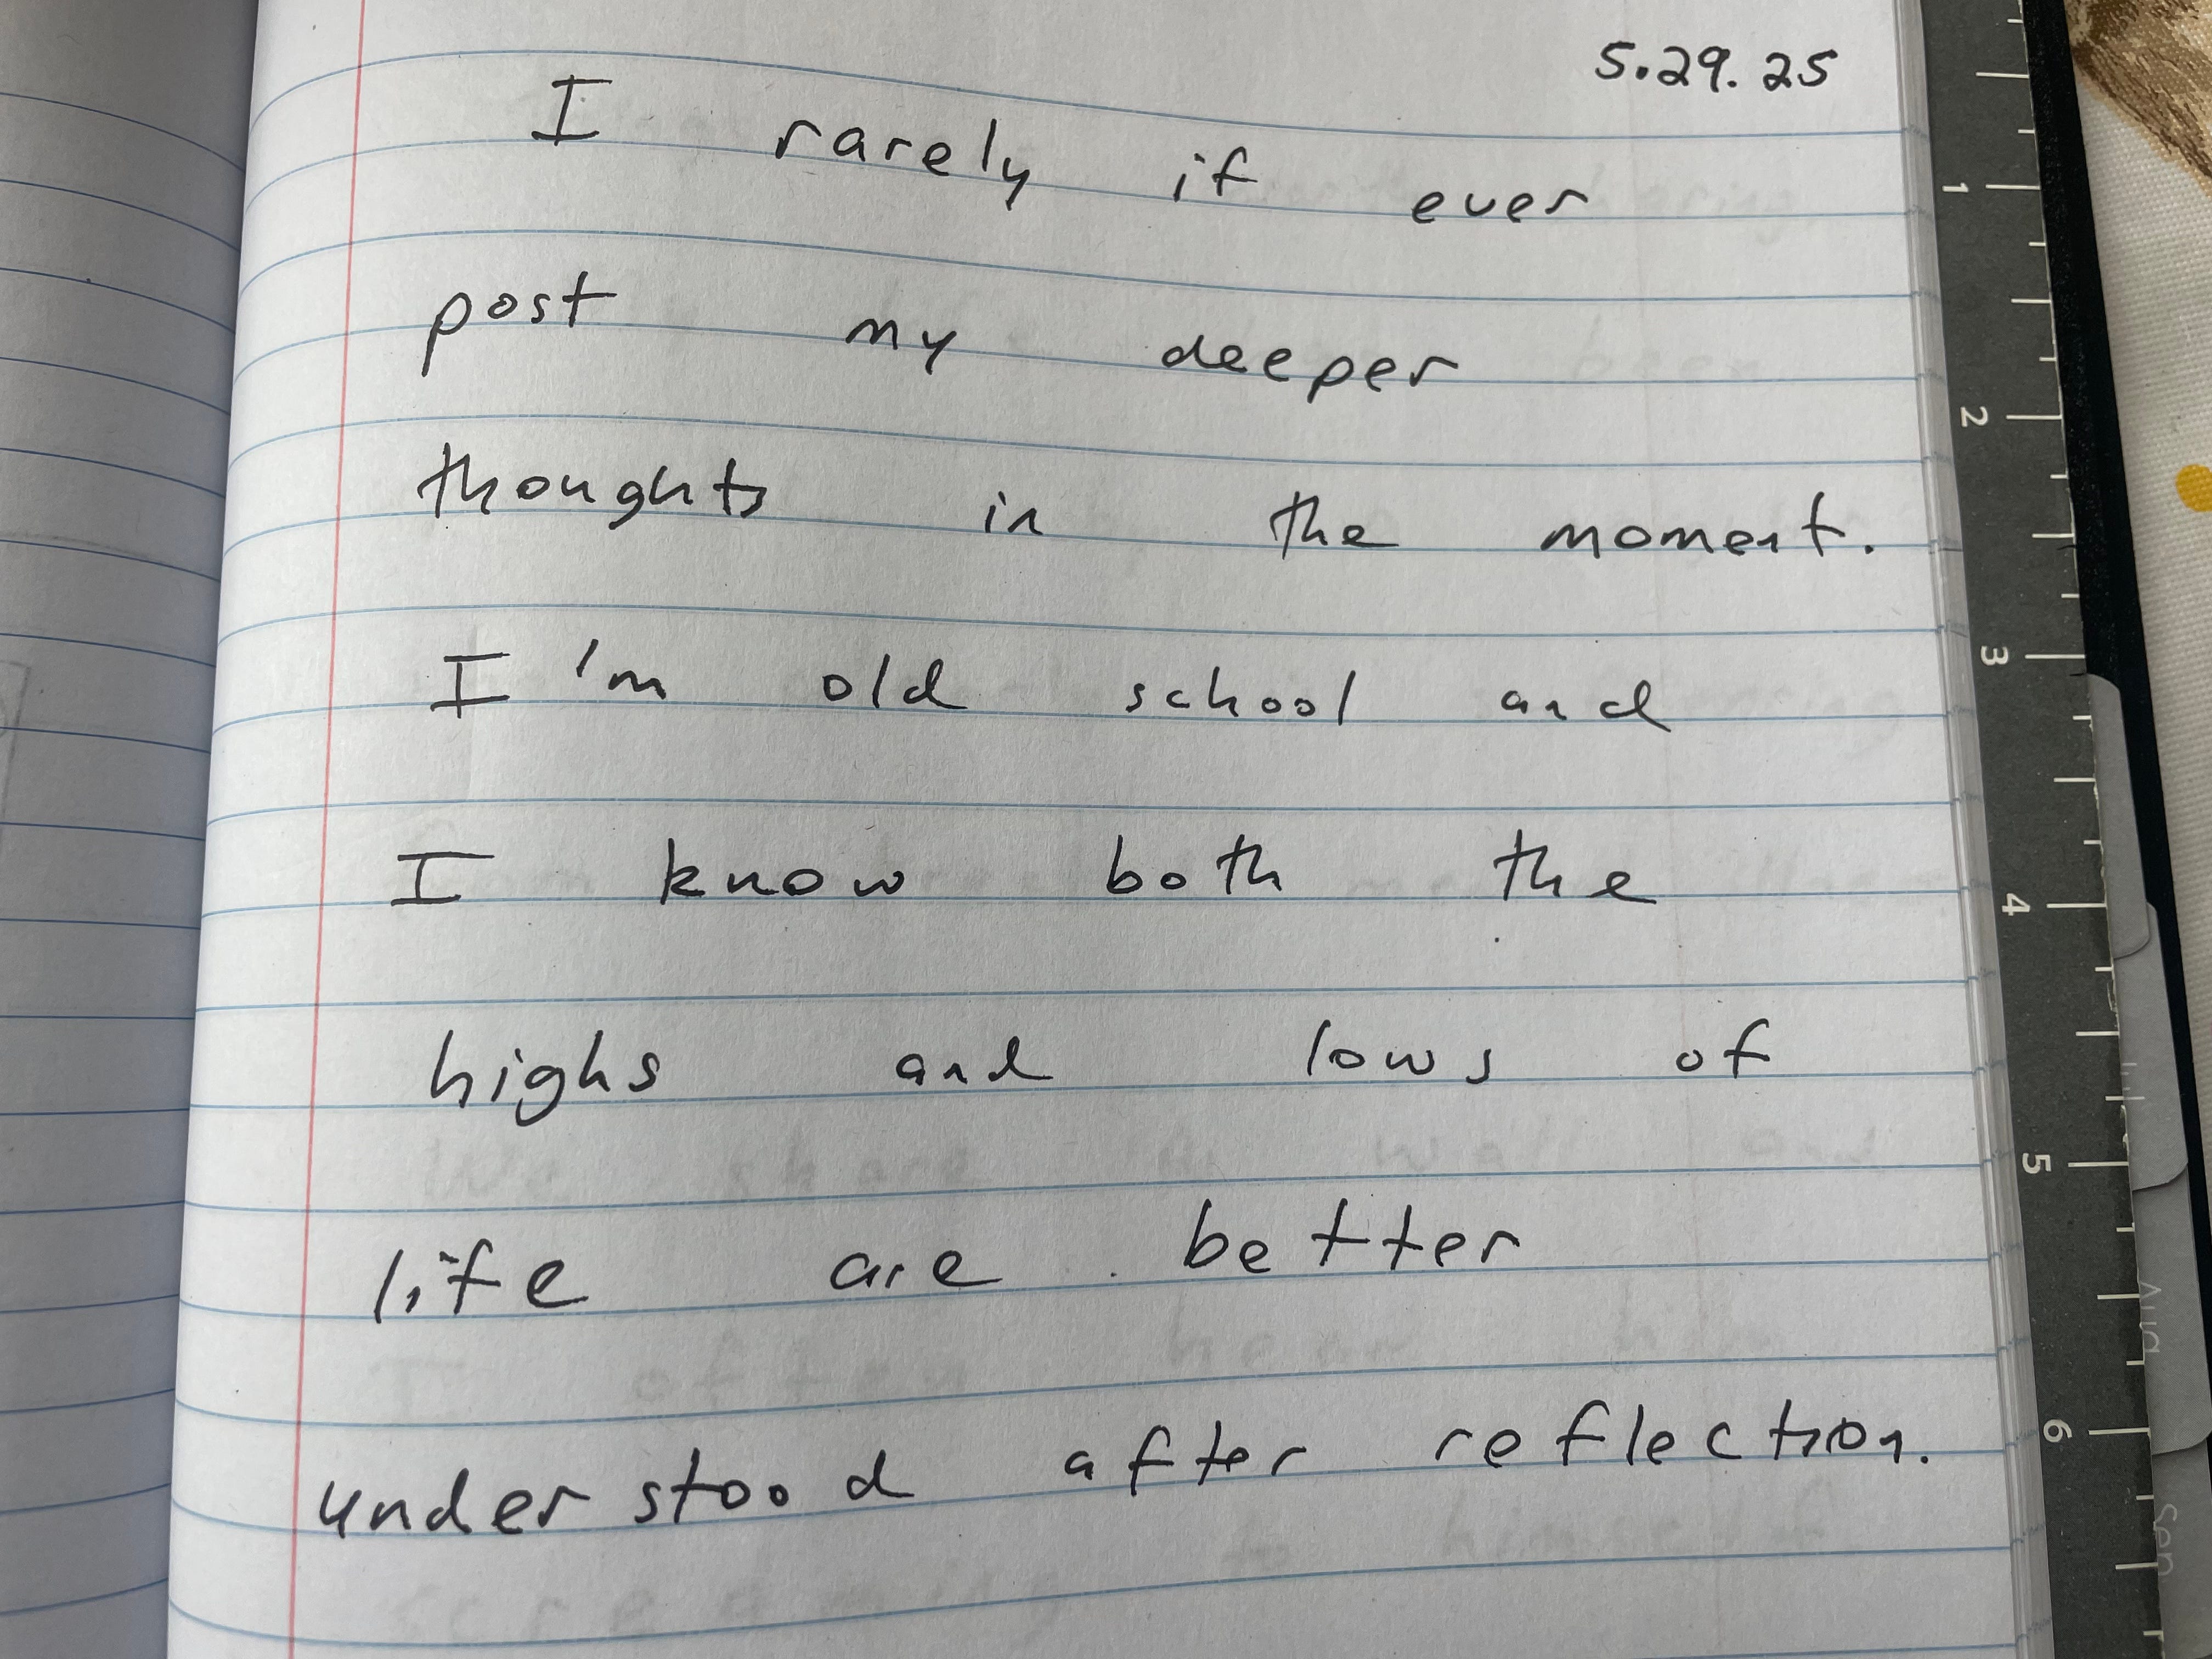 5.29.25
I rarely if ever
post my deeper
thoughts in the moment.
I'm old school and
I know both the
highs and lows of
life are better
understood after reflection.
1
2
3
4
5
6
Aug
Sep